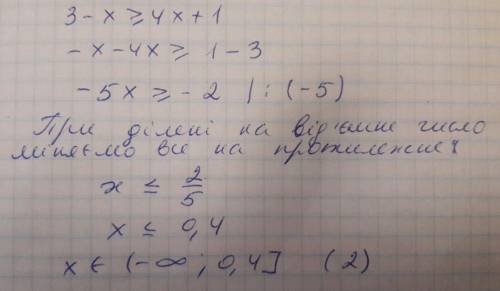 3-x ≥ 4x+1
-x-4x ≥ 1-3
-5x ≥ -2 | : (-5)
При ділені на від'ємне число
міняємо все на протилежне
x ≤ 2/5
x ≤ 0,4
x ∈ (-∞ ; 0,4] (2)